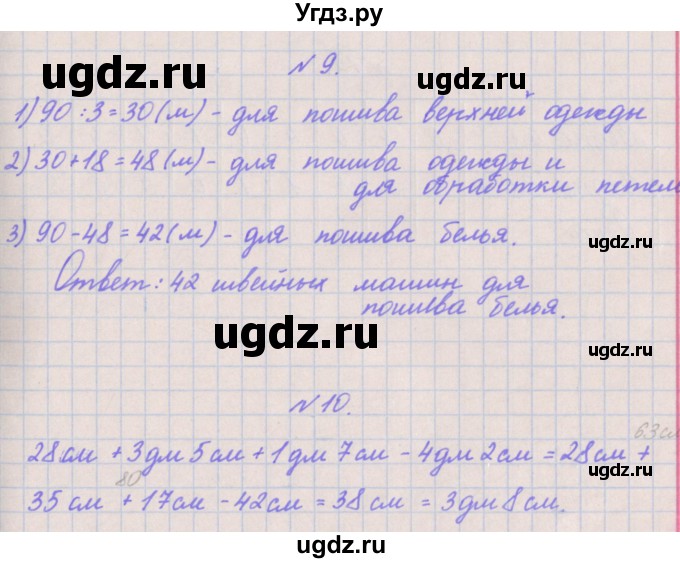 Угдз.ру
ugdz.ru ugdz.ru
№ 9.
1) 90 : 3 = 30 (м) - для пошива верхней одежды
2) 30 + 18 = 48 (м) - для пошива одежды и
для обработки петель
ugdz.ru
3) 90 - 48 = 42 (м) - для пошива белья.
Ответ: 42 швейных машин для
пошива белья.
ugdz.ru
ugdz.ru
№ 10.
63 см
28 см + 3 дм 5 см + 1 дм 7 см - 4 дм 2 см = 28 см +
ugdz.ru
80
35 см + 17 см - 42 см = 38 см = 3 дм 8 см.
ugdz.ru